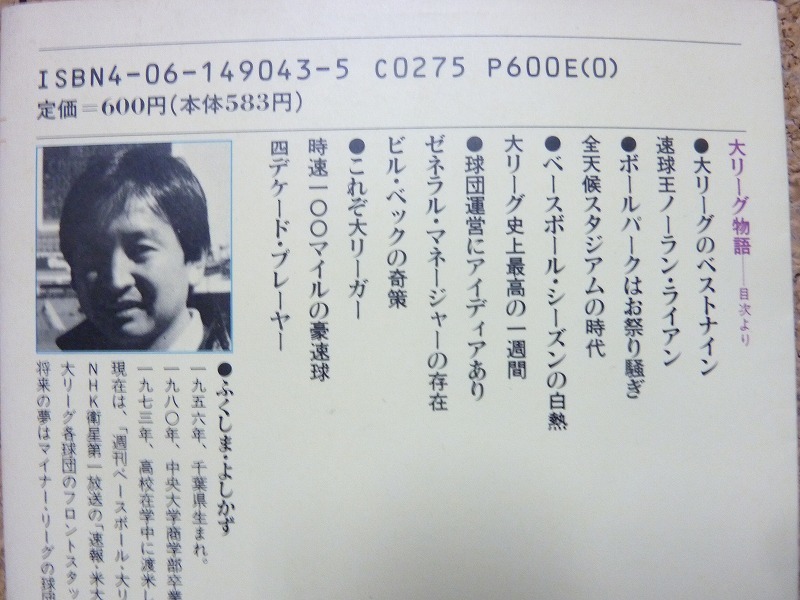 ISBN4-06-149043-5 C0275 P600E(0)
定価=600円(本体583円)
大リーグ物語——目次より
●大リーグのベストナイン
速球王ノーラン・ライアン
●ボールパークはお祭り騒ぎ
全天候スタジアムの時代
●ベースボール・シーズンの白熱
大リーグ史上最高の一週間
●球団運営にアイディアあり
ゼネラル・マネージャーの存在
ビル・ベックの奇策
●これぞ大リーガー
時速一〇〇マイルの豪速球
四デケード・プレーヤー
●ふくしま・よしかず
一九五六年、千葉県生まれ。
一九八〇年、中央大学商学部卒業
一九七三年、高校在学中に渡米し
現在は、「週刊ベースボール・大リ
NHK衛星第一放送の「速報・米大
大リーグ各球団のフロントスタッ
将来の夢はマイナー・リーグの球団